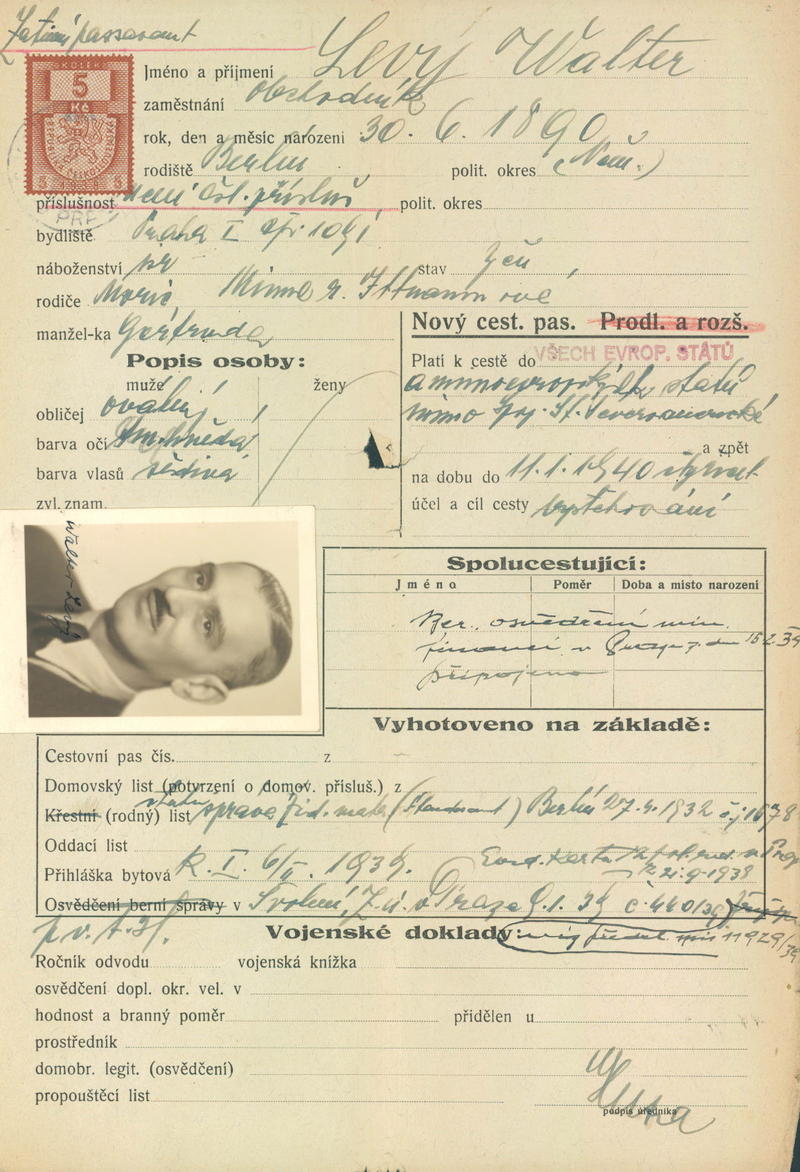 Zatímní passavant
KOLEK
5
Kč
REPUBLIKA ČESKOSLOVENSKÁ
5 5
Jméno a příjmení Levý Walter
zaměstnání Obchodník
rok, den a měsíc narození 30. 6. 1890
rodiště Berlin, polit. okres (Něm.)
příslušnost není čsl. přísluš, polit. okres
bydliště Praha I čp. 1091
náboženství stav žen,
rodiče Moric Minna r. Ittmannova
manžel-ka Gertruda
Nový cest. pas. Prodl. a rozš.
Popis osoby:
muže ženy
obličej oválný
barva očí tm. hnědá
barva vlasů šedivá
zvl. znam.
Platí k cestě do VŠECH EVROP. STÁTŮ
a mimoevropských států
mimo Spoj. St. Severoamerické
a zpět
na dobu do 11. 1. 1940
účel a cíl cesty vystěhování
Walter Levý
Spolucestující:
Jméno Poměr Doba a místo narození
Ber. osvědčení min.
financí v Praze z dne 15. 2. 39
připojeno
Vyhotoveno na základě:
Cestovní pas čís. z
Domovský list (potvrzení o domov. přísluš.) z
Křestní (rodný) list správa žid. (Standesamt) Berlin 27. 4. 1932
Oddací list
Přihláška bytová P. I. 6/II. 1939.
21. 9. 1938
Osvědčení berní správy v Praze 9. 1. 39 č. 440/39
p. v. t. 31.
Vojenské doklady:
11929/39
Ročník odvodu vojenská knížka
osvědčení dopl. okr. vel. v
hodnost a branný poměr přidělen u
prostředník
domobr. legit. (osvědčení)
propouštěcí list
podpis úředníka